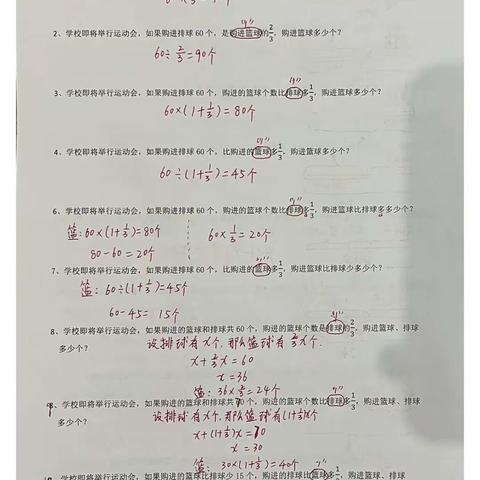 "1"
2、学校即将举行运动会，如果购进排球 60 个，是购进篮球的2/3，购进篮球多少个？
60÷2/3=90个
"1"
3、学校即将举行运动会，如果购进排球 60 个，购进的篮球个数比排球多1/3，购进篮球多少个？
60×(1+1/3)=80个
"1"
4、学校即将举行运动会，如果购进排球 60 个，比购进的篮球多1/3，购进篮球多少个？
60÷(1+1/3)=45个
"1"
6、学校即将举行运动会，如果购进排球 60 个，购进的篮球个数比排球多1/3，购进篮球比排球多多少个？
篮:60×(1+1/3)=80个 60×1/3=20个
80-60=20个
"1"
7、学校即将举行运动会，如果购进排球 60 个，比购进的篮球多1/3，购进篮球比排球少多少个？
篮：60÷(1+1/3)=45个
60-45= 15个
"1"
8、学校即将举行运动会，如果购进的篮球和排球共 60 个，购进的篮球个数是排球的2/3，购进篮球、排球
多少个？ 设排球有x个,那么篮球有2/3x个.
x+2/3x=60
x=36
篮：36×2/3=24个
"1"
9、学校即将举行运动会，如果购进的篮球和排球共70 个，购进的篮球个数比排球多1/3，购进篮球、排球
多少个？ 设排球有x个,那么篮球有(1+1/3)x个
x+(1+1/3)x=70
x=30
篮：30×(1+1/3)=40个
"1"
学校即将举行运动会，如果购进的排球比篮球少 15 个，购进的篮球个数比排球多1/3，购进篮球、排球